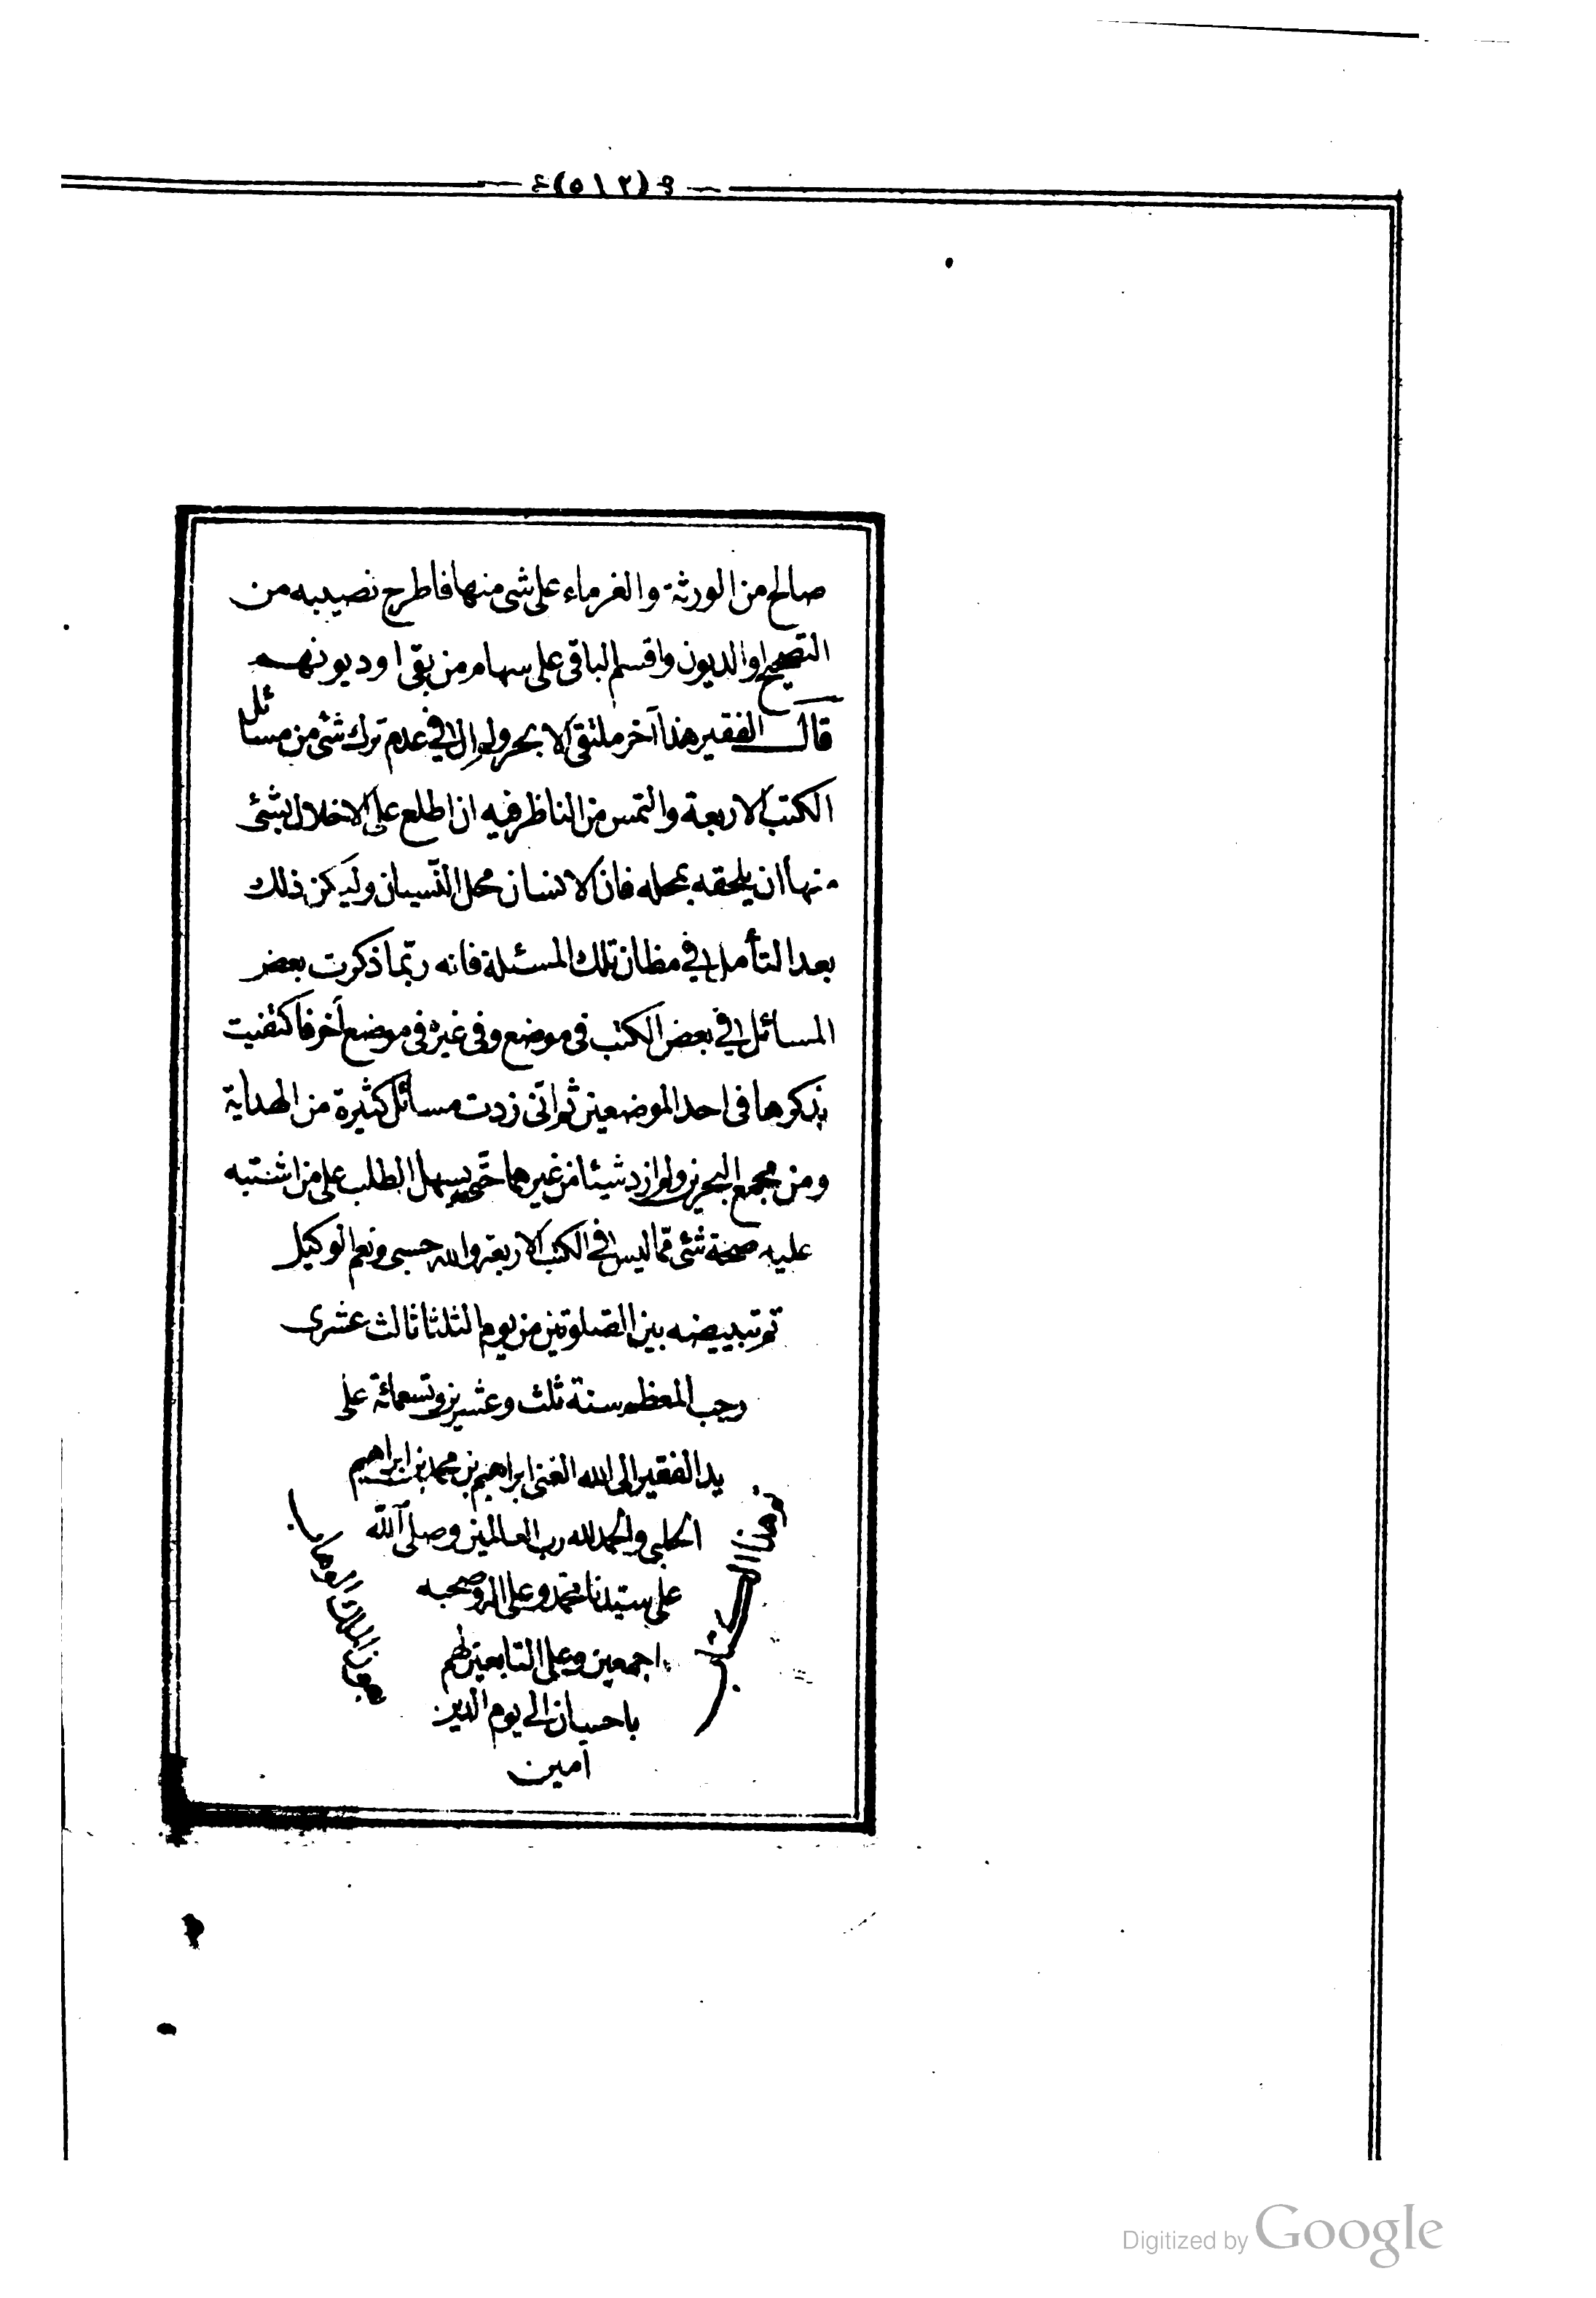 (٥١٢)
صالح من الورثة والغرماء على شى منها فاطرح نصيبه من
التصحيح او الديون واقسم الباقى على سهام من بقى او ديونهم
قال الفقير هذا آخر ملتقى الابحر ولم آل فى عدم ترك شئ من مسائل
الكتب الاربعة والتمس من الناظر فيه ان اطلع على الاخلال بشئ
منها ان يلحقه بمحله فان الانسان محل النسيان وليكن ذلك
بعد التأمل فى مظان تلك المسئلة فانه ربّما ذكرت بعض
المسائل فى بعض الكتب فى موضع وفى غيره فى موضع آخر فاكتفيت
بذكرها فى احد الموضعين ثم انّى زدت مسائل كثيرة من الهداية
ومن مجمع البحرين ولم ازد شيئا من غيرهما حتّى يسهل الطلب على من اشتبه
عليه صحة شئ ممّا ليس فى الكتب الاربعة والله حسبى ونعم الوكيل
تم تبييضه بين الصلوتين من يوم الثلثا ثالث عشرى
رجب المعظم سنة ثلث وعشرين وتسعمائة على
يد الفقير الى الله الغنى ابراهيم بن محمد بن ابراهيم
الحلبى والحمد لله رب العالمين وصلى الله
على سيّدنا محمّد وعلى اله وصحبه
اجمعين وعلى التابعين لهم
باحسان الى يوم الدين
آمين
تم هذا الكتاب
بعون الملك الوهاب
Digitized by Google